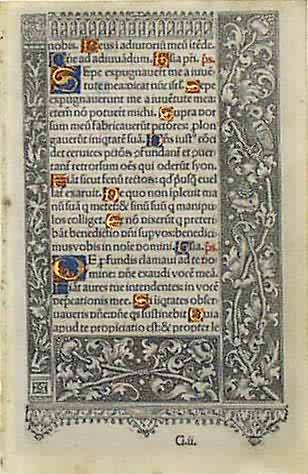 nobis. Deus i adiutoriū meū itēde.
Dñe ad adiuvādum. Glia p̄ri. ps.
Sepe expugnauerūt me a iuuē
tute mea: dicat nūc isrl. Sepe
expugnauerunt me a iuuētute mea:
etem nō potuerūt michi. Supra dor
sum meū fabricauerūt pctores: plon
gauerūt iniqtatē suā. Dn̄s iust⁹
ceruices pctōꝝ: cōfundanť et
tanť retrorsum oēs qui oderūt syon.
Fiāt sicut fenū tectoꝝ: qđ
exaruit. De quo non īpleuit ma
nū suā q metit: et sinū suū q manipu
los colliget. Et nō dixerūt q preteri
bāt benedictio dn̄i sup vos: benedixi
mus vobis in noīe domini. Glia. ps.
De pfundis clamaui ad te do
mine: dn̄e exaudi vocē meā.
Fiāt aures tue intendentes: in vocē
depcationis mee. Si iniqtates obser
uaueris dn̄e: dn̄e qs sustinebit. Quia
apud te propiciatio est: & propter le
G.ii.